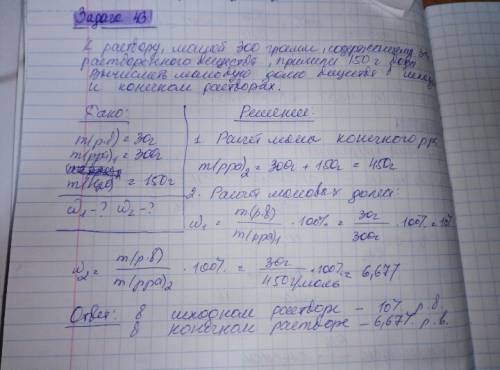 Задача 43
К раствору, массой 300 грамм, содержащему 30г
растворенного вещества, прилили 150 г воды
Вычислить массовую долю вещества в исходном
и конечном растворах.
Дано: Решение:
m(р.в) = 30г 1. Расчёт массы конечного р-ра
m(рра)₁ = 300г
m(рра)₂ = 300г + 150г = 450г
m(H₂O) = 150г 2. Расчёт массовых долей:
ω₁ - ? ω₂ - ?
ω₁ = m(р.в)/m(рра)₁ · 100% = 30г/300г · 100% = 10%
ω₂ = m(р.в)/m(рра)₂ · 100% = 30г/450г/моль · 100% = 6,67%
Ответ: в исходном растворе - 10% р.в.
в конечном растворе - 6,67% р.в.